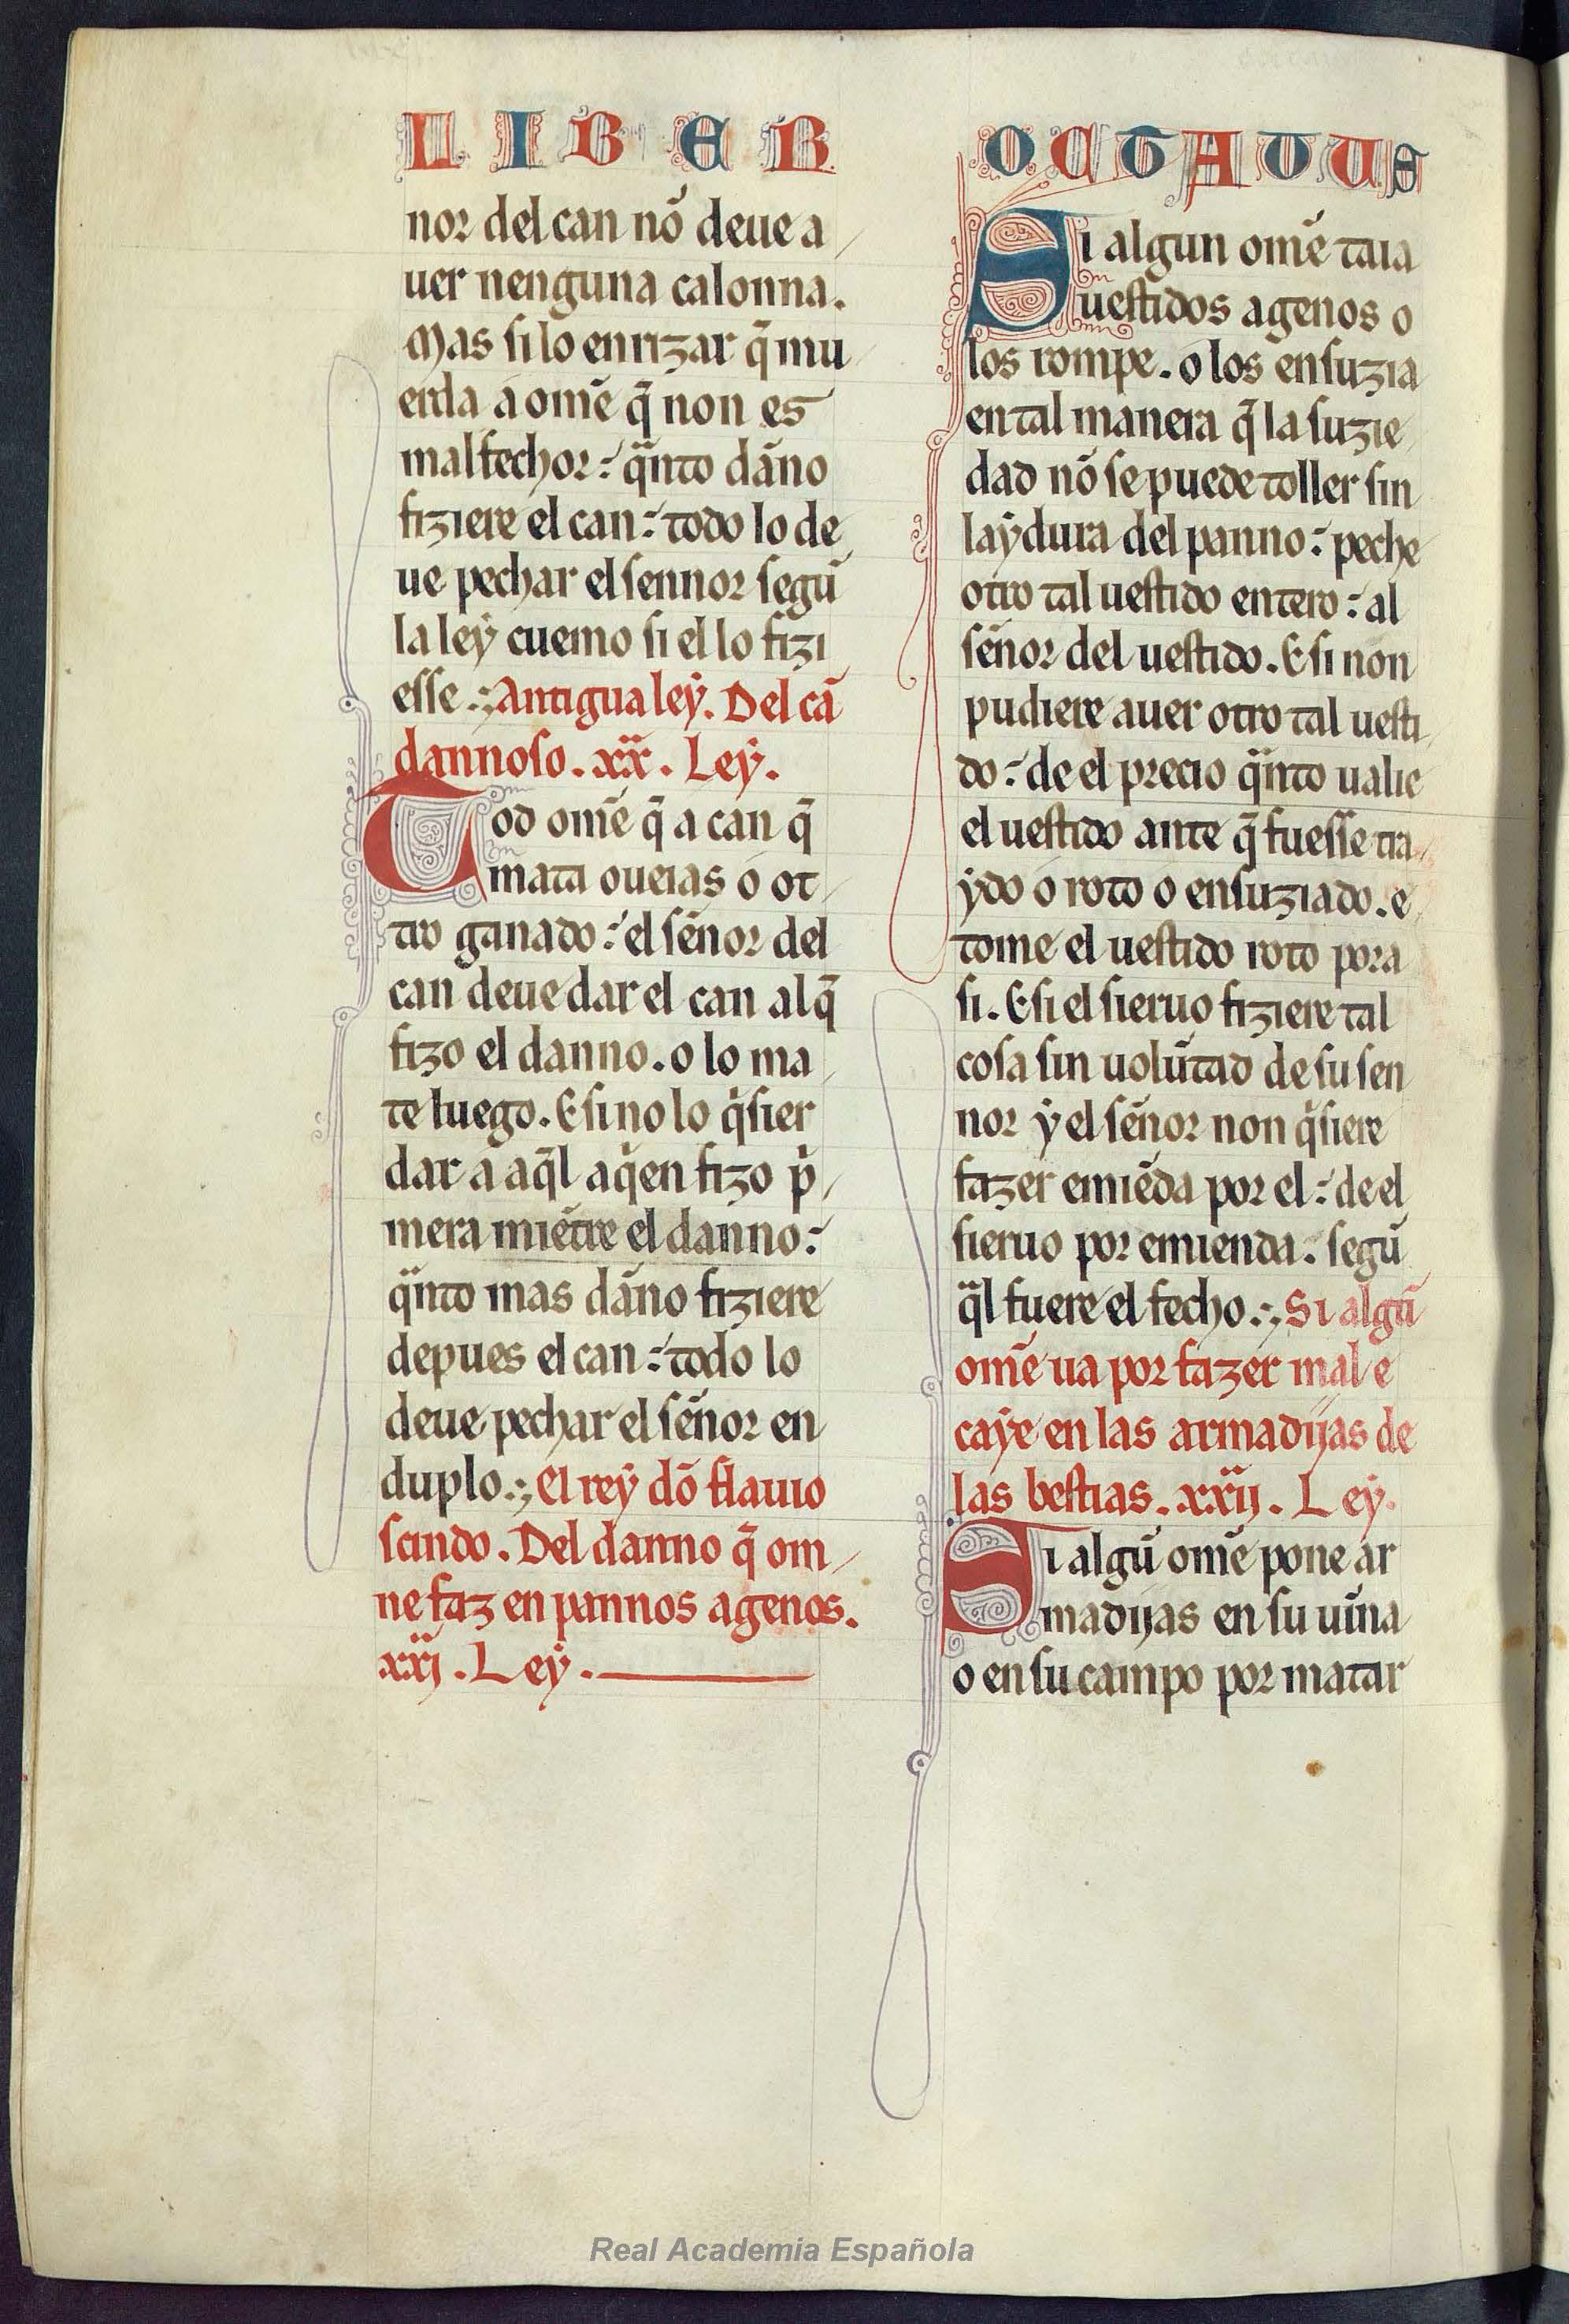 LIBER OCTAUUS
nor del can nõ deue a
uer nenguna calonna.
Mas si lo enrizar q̃ mu
erda a omẽ q̃ non es
malfechor: q̃nto dãno
fiziere el can: todo lo de
ue pechar el sennor segũ
la leẏ cuemo si el lo fizi
esse.:, Antigua leẏ. Del cã
dannoso. xx̃. Leẏ.
Tod omẽ q̃ a can q̃
mata oueias o ot
tro ganado: el sẽnor del
can deue dar el can al q̃
fizo el danno. o lo ma
te luego. E si no lo q̃sier
dar a aq̃l aq̃en fizo p̃
mera miẽtre el danno:
q̃nto mas dãno fiziere
depues el can: todo lo
deue pechar el sẽnor en
duplo.:, El reẏ dõ flauio
scindo. Del danno q̃ om
ne faz en pannos agenos.
xx̃j. Leẏ.
Si algun omẽ taia
uestidos agenos o
los rompe. o los ensuzia
en tal manera q̃ la suzie
dad nõ se puede toller sin
laẏdura del panno: peche
otro tal uestido entero: al
sẽnor del uestido. E si non
pudiere auer otro tal uesti
do: de el precio q̃nto ualie
el uestido ante q̃ fuesse tra
ẏdo o roto o ensuziado. e
tome el uestido roto pora
si. E si el sieruo fiziere tal
cosa sin uolũtad de su sen
nor ẏ el sẽnor non q̃siere
fazer emiẽda por el: de el
sieruo por emienda. segũ
q̃l fuere el fecho.:, Si algũ
omẽ ua por fazer mal e
caẏe en las armadijas de
las bestias. xx̃ij. Leẏ.
Si algũ omẽ pone ar
madijas en su uĩna
o en su campo por matar
Real Academia Española